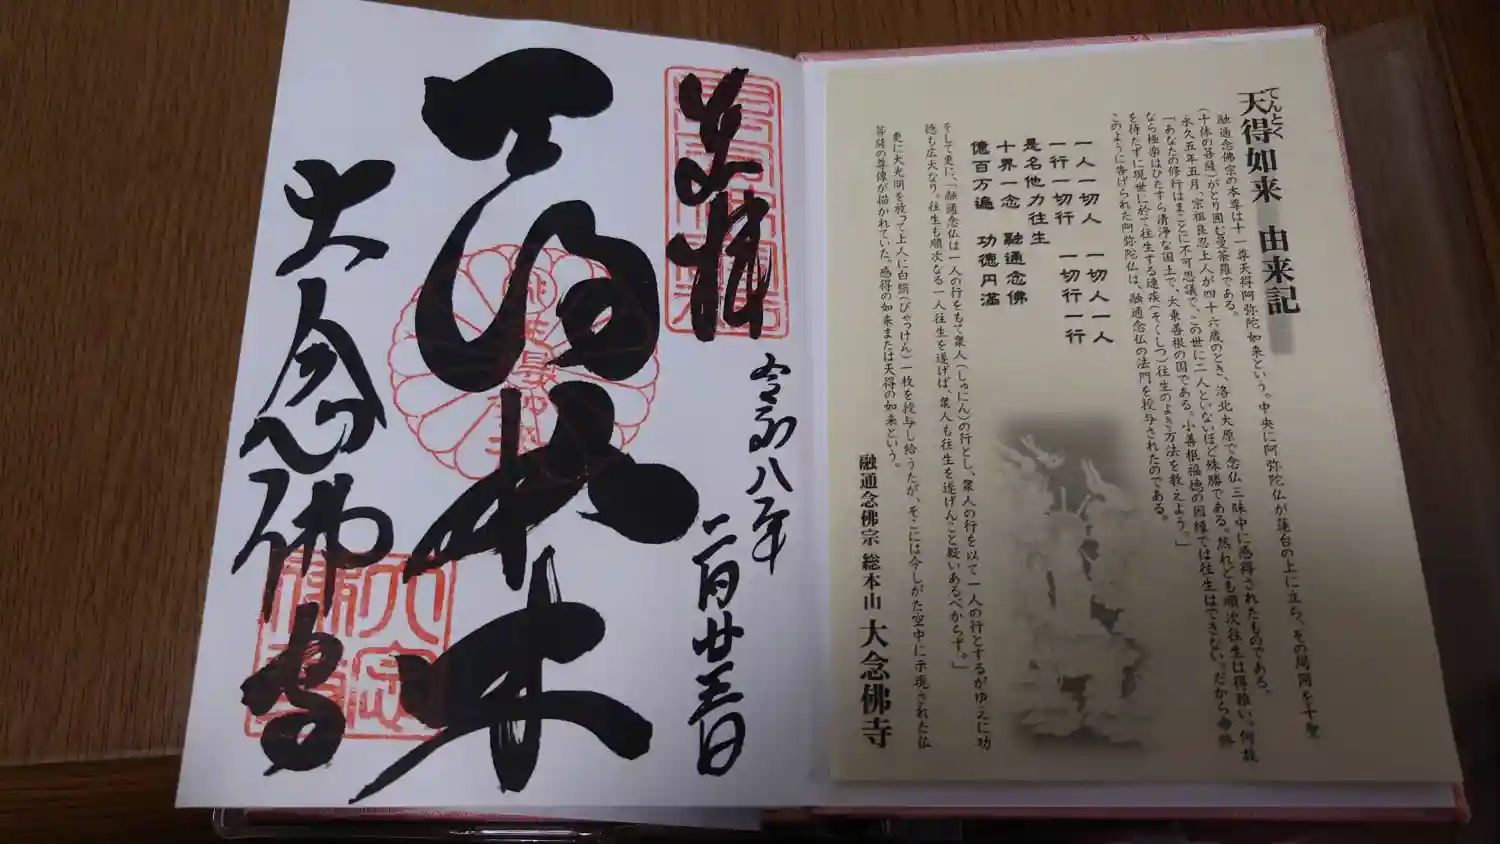 てんとく
天得如来 由来記
融通念佛宗の本尊は十一尊天得阿弥陀如来という。中央に阿弥陀仏が蓮台の上に立ち、その周囲を十聖
(十体の菩薩)がとり囲む曼荼羅である。
永久五年五月、宗祖良忍上人が四十六歳のとき、洛北大原で念仏三昧中に感得されたものである。
「あなたの修行はまことに不可思議で、この世に二人といないほど殊勝である。然れども順次往生は得難い。何故
なら極楽はひたすら清浄な国土で、大乗善根の国である。小善根福徳の因縁では往生はできない。だから命終
を待たずに現世に於て往生する速疾(そくしつ)往生のよき方法を教えよう。」
このように告げられた阿弥陀仏は、融通念仏の法門を授与されたのである。
一人一切人 一切人一人
一行一切行 一切行一行
是名他力往生
十界一念 融通念佛
億百万遍 功徳円満
そして更に、「融通念仏は一人の行をもて衆人(しゅにん)の行とし、衆人の行を以て一人の行とするがゆえに功
徳も広大なり。往生も順次なる一人往生を遂げば、衆人も往生を遂げんこと疑いあるべからず。」
更に大光明を放って上人に白絹(びゃっけん)一枚を授与し給うたが、そこには今しがた空中に示現された仏
菩薩の尊像が描かれていた。感得の如来または天得の如来という。
融通念佛宗 総本山 大念佛寺
奉拝
令和八年
二月廿三日
天得如来
大念佛寺